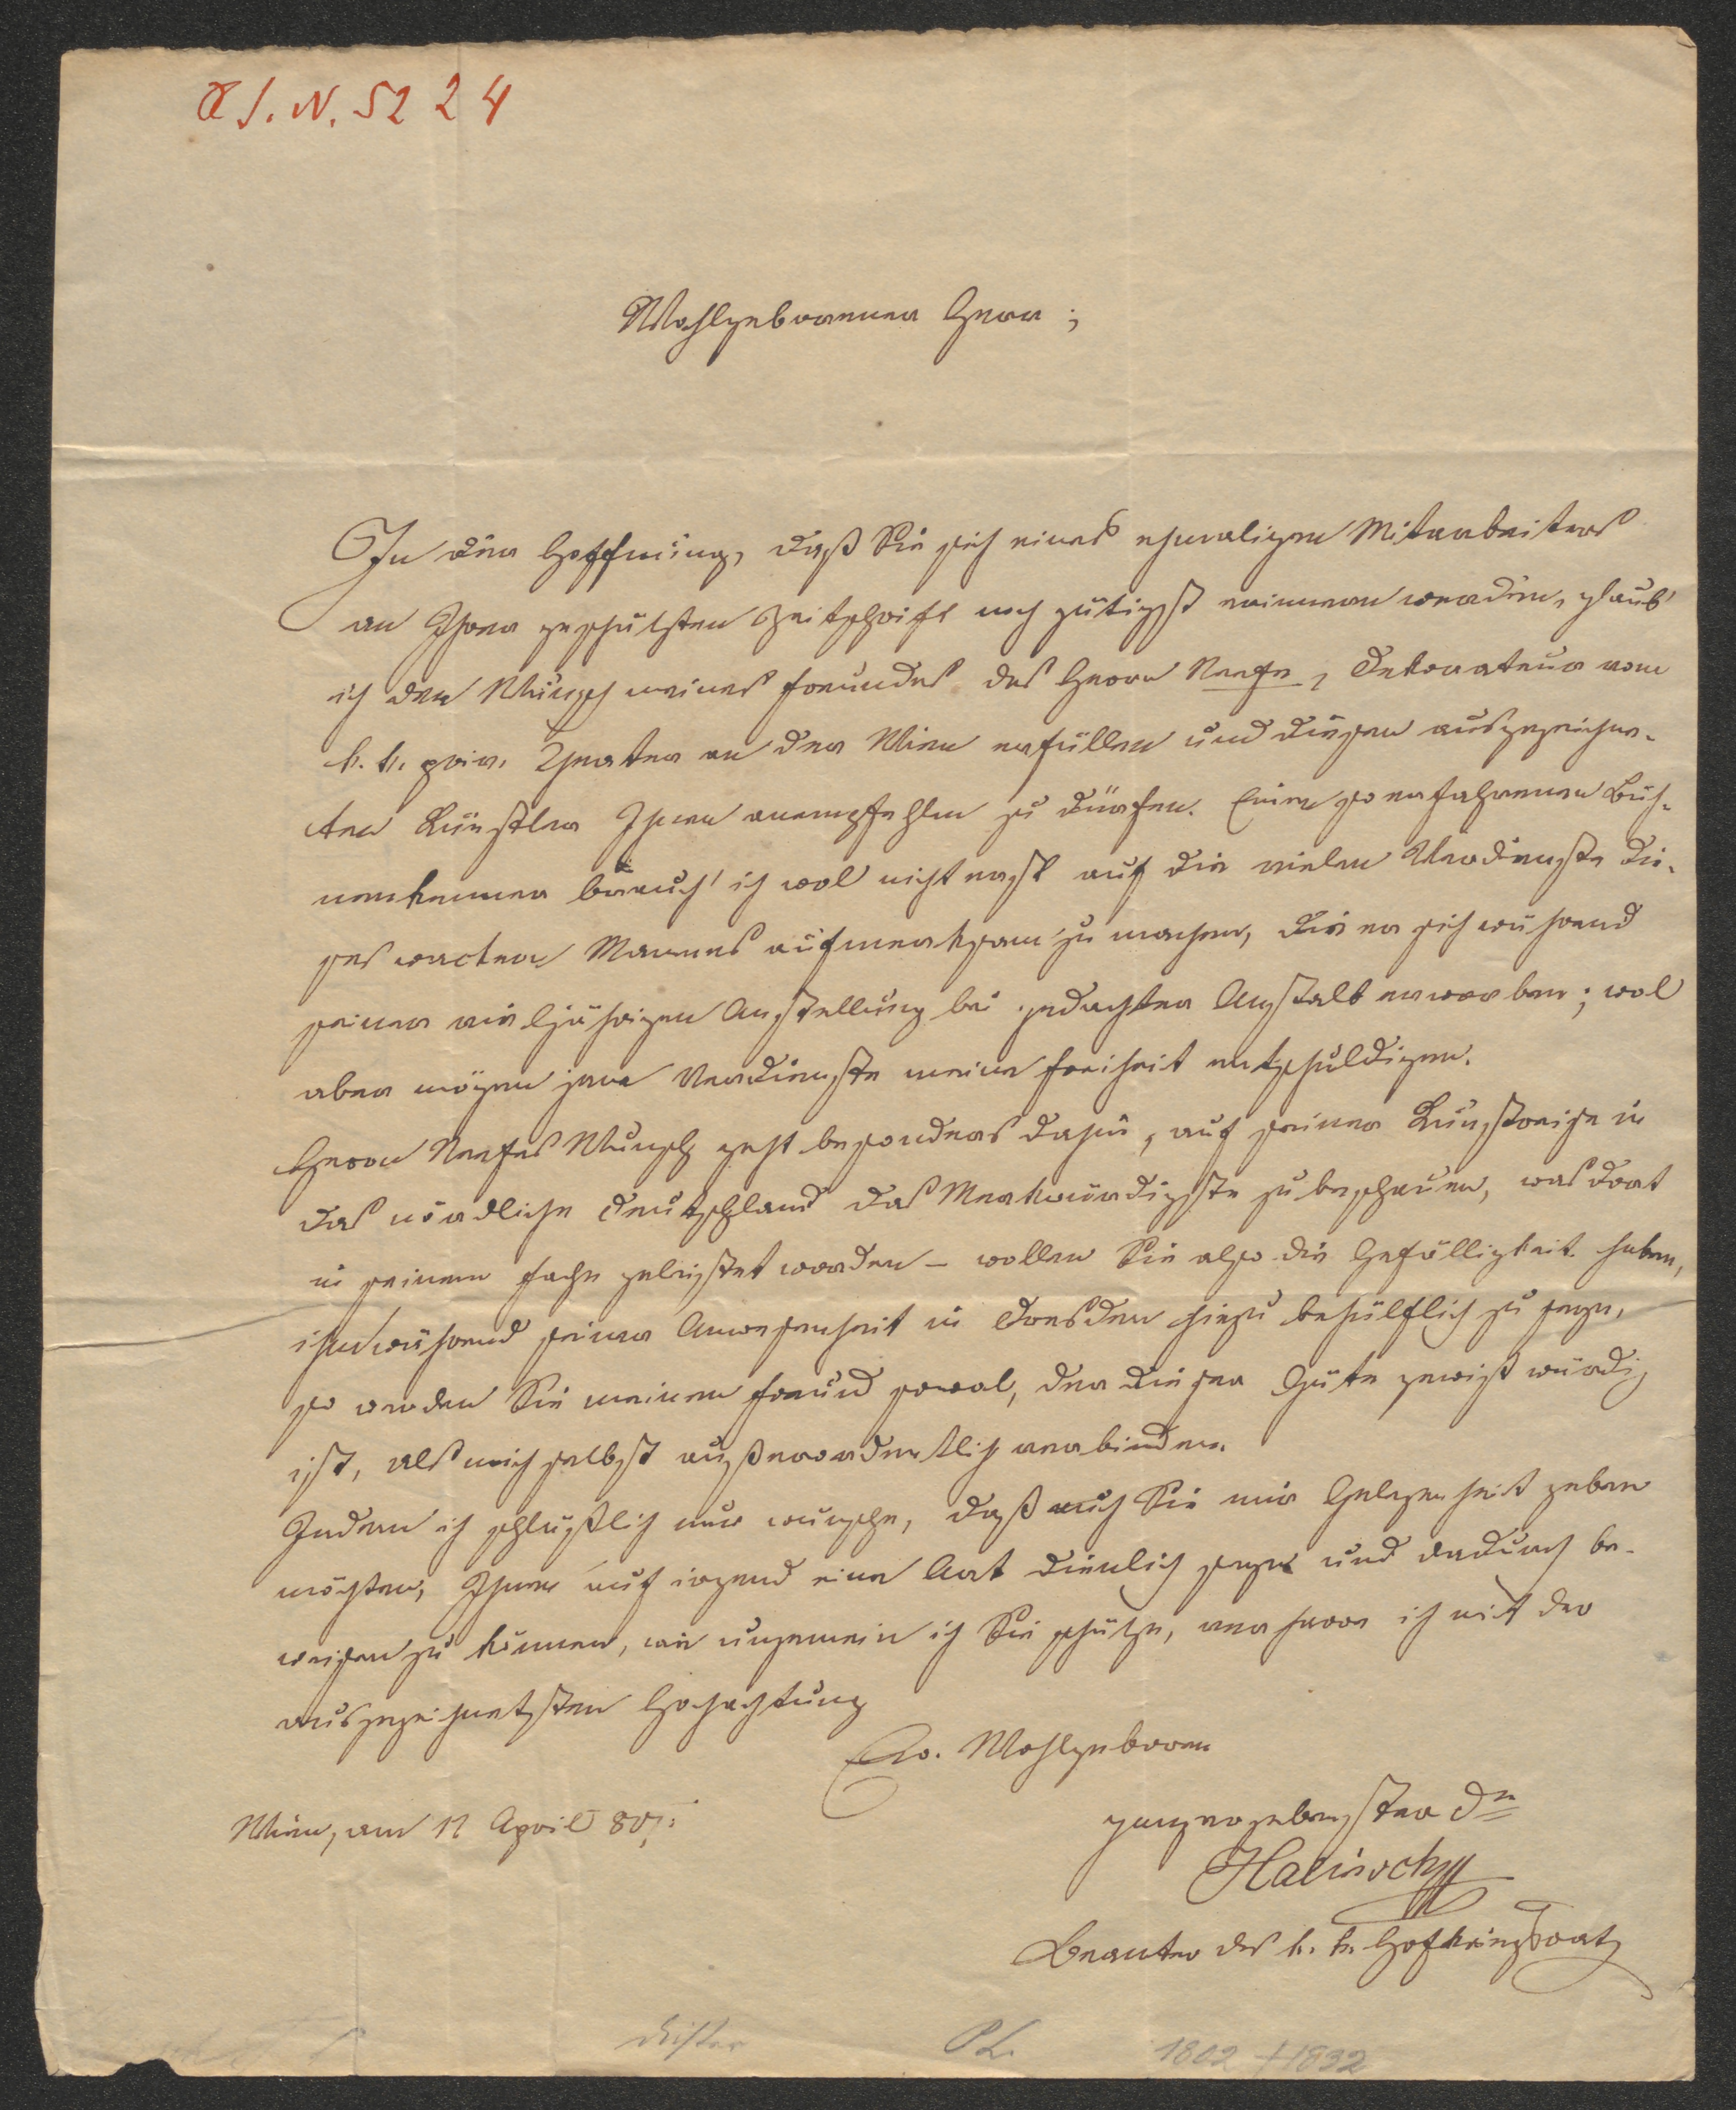 I. N. 5224
Wohlgeborener Herr;
In der Hoffnung, daß Sie sich eines ehmaligen Mitarbeiters
an Ihrer geschätzten Zeitschrift noch gütigst erinnern werden, glaub'
ich den Wunsch meines Freundes des Herrn Neefe, Dekorateur vom
k. k. priv. Theater an der Wien erfüllen und diesen ausgezeichne-
ten Künstler Ihnen anempfehlen zu dürfen. Einem so erfahrenen Büh-
nenkenner brauch' ich wol nicht erst auf die vielen Verdienste die-
ses wackern Mannes aufmerksam zu machen, die er sich während
seiner vieljährigen Anstellung bei gedachter Anstalt erworben; wol
aber mögen jene Verdienste meine Freiheit entschuldigen.
Herrn Neefes Wunsch geht besonders dahin, auf seiner Kunstreise in
das nördliche Deutschland das Merkwürdigste zu beschauen, was dort
in seinem Fache geleistet worden – wollen Sie also die Gefälligkeit haben,
ihm während seiner Anwesenheit in Dresden hiezu behülflich zu seyn,
so werden Sie meinen Freund sowol, der dieser Güte gewiß würdig
ist, als mich selbst außerordentlich verbinden.
Indem ich schlüßlich nur wünsche, daß auch Sie mir Gelegenheit geben
möchten, Ihnen auf irgend eine Art dienlich seyn und dadurch be-
weisen zu können, wie ungemein ich Sie schätze, verharre ich mit der
ausgezeichnetsten Hochachtung
Ew. Wohlgeboren
Wien, am 12 April 8
ganz ergebenster Dr
Halirsch
Beamter des k. k. Hofkriegsrats
Dichter
PL.
1802 +1832